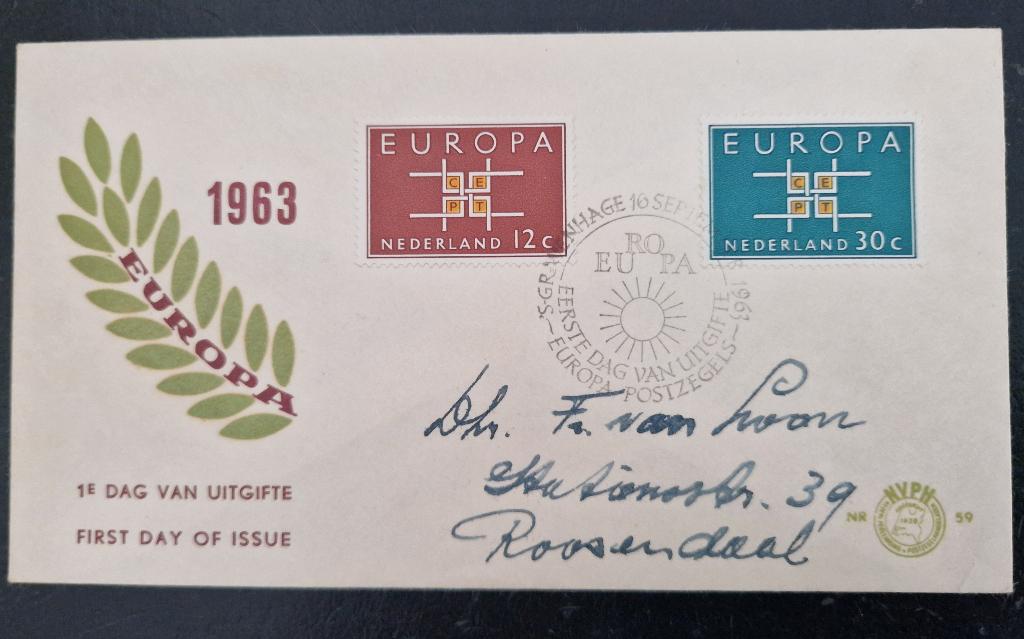 1963
EUROPA
1E DAG VAN UITGIFTE
FIRST DAY OF ISSUE
EUROPA
C E
P T
NEDERLAND 12 C
EUROPA
C E
P T
NEDERLAND 30 C
'S-GRAVENHAGE 16 SEPTEMBER 1963
EUROPA
EERSTE DAG VAN UITGIFTE
EUROPA POSTZEGELS
Dhr. Fr. van Loon
Stationsstr. 39
Roosendaal
NR
NVPH
59